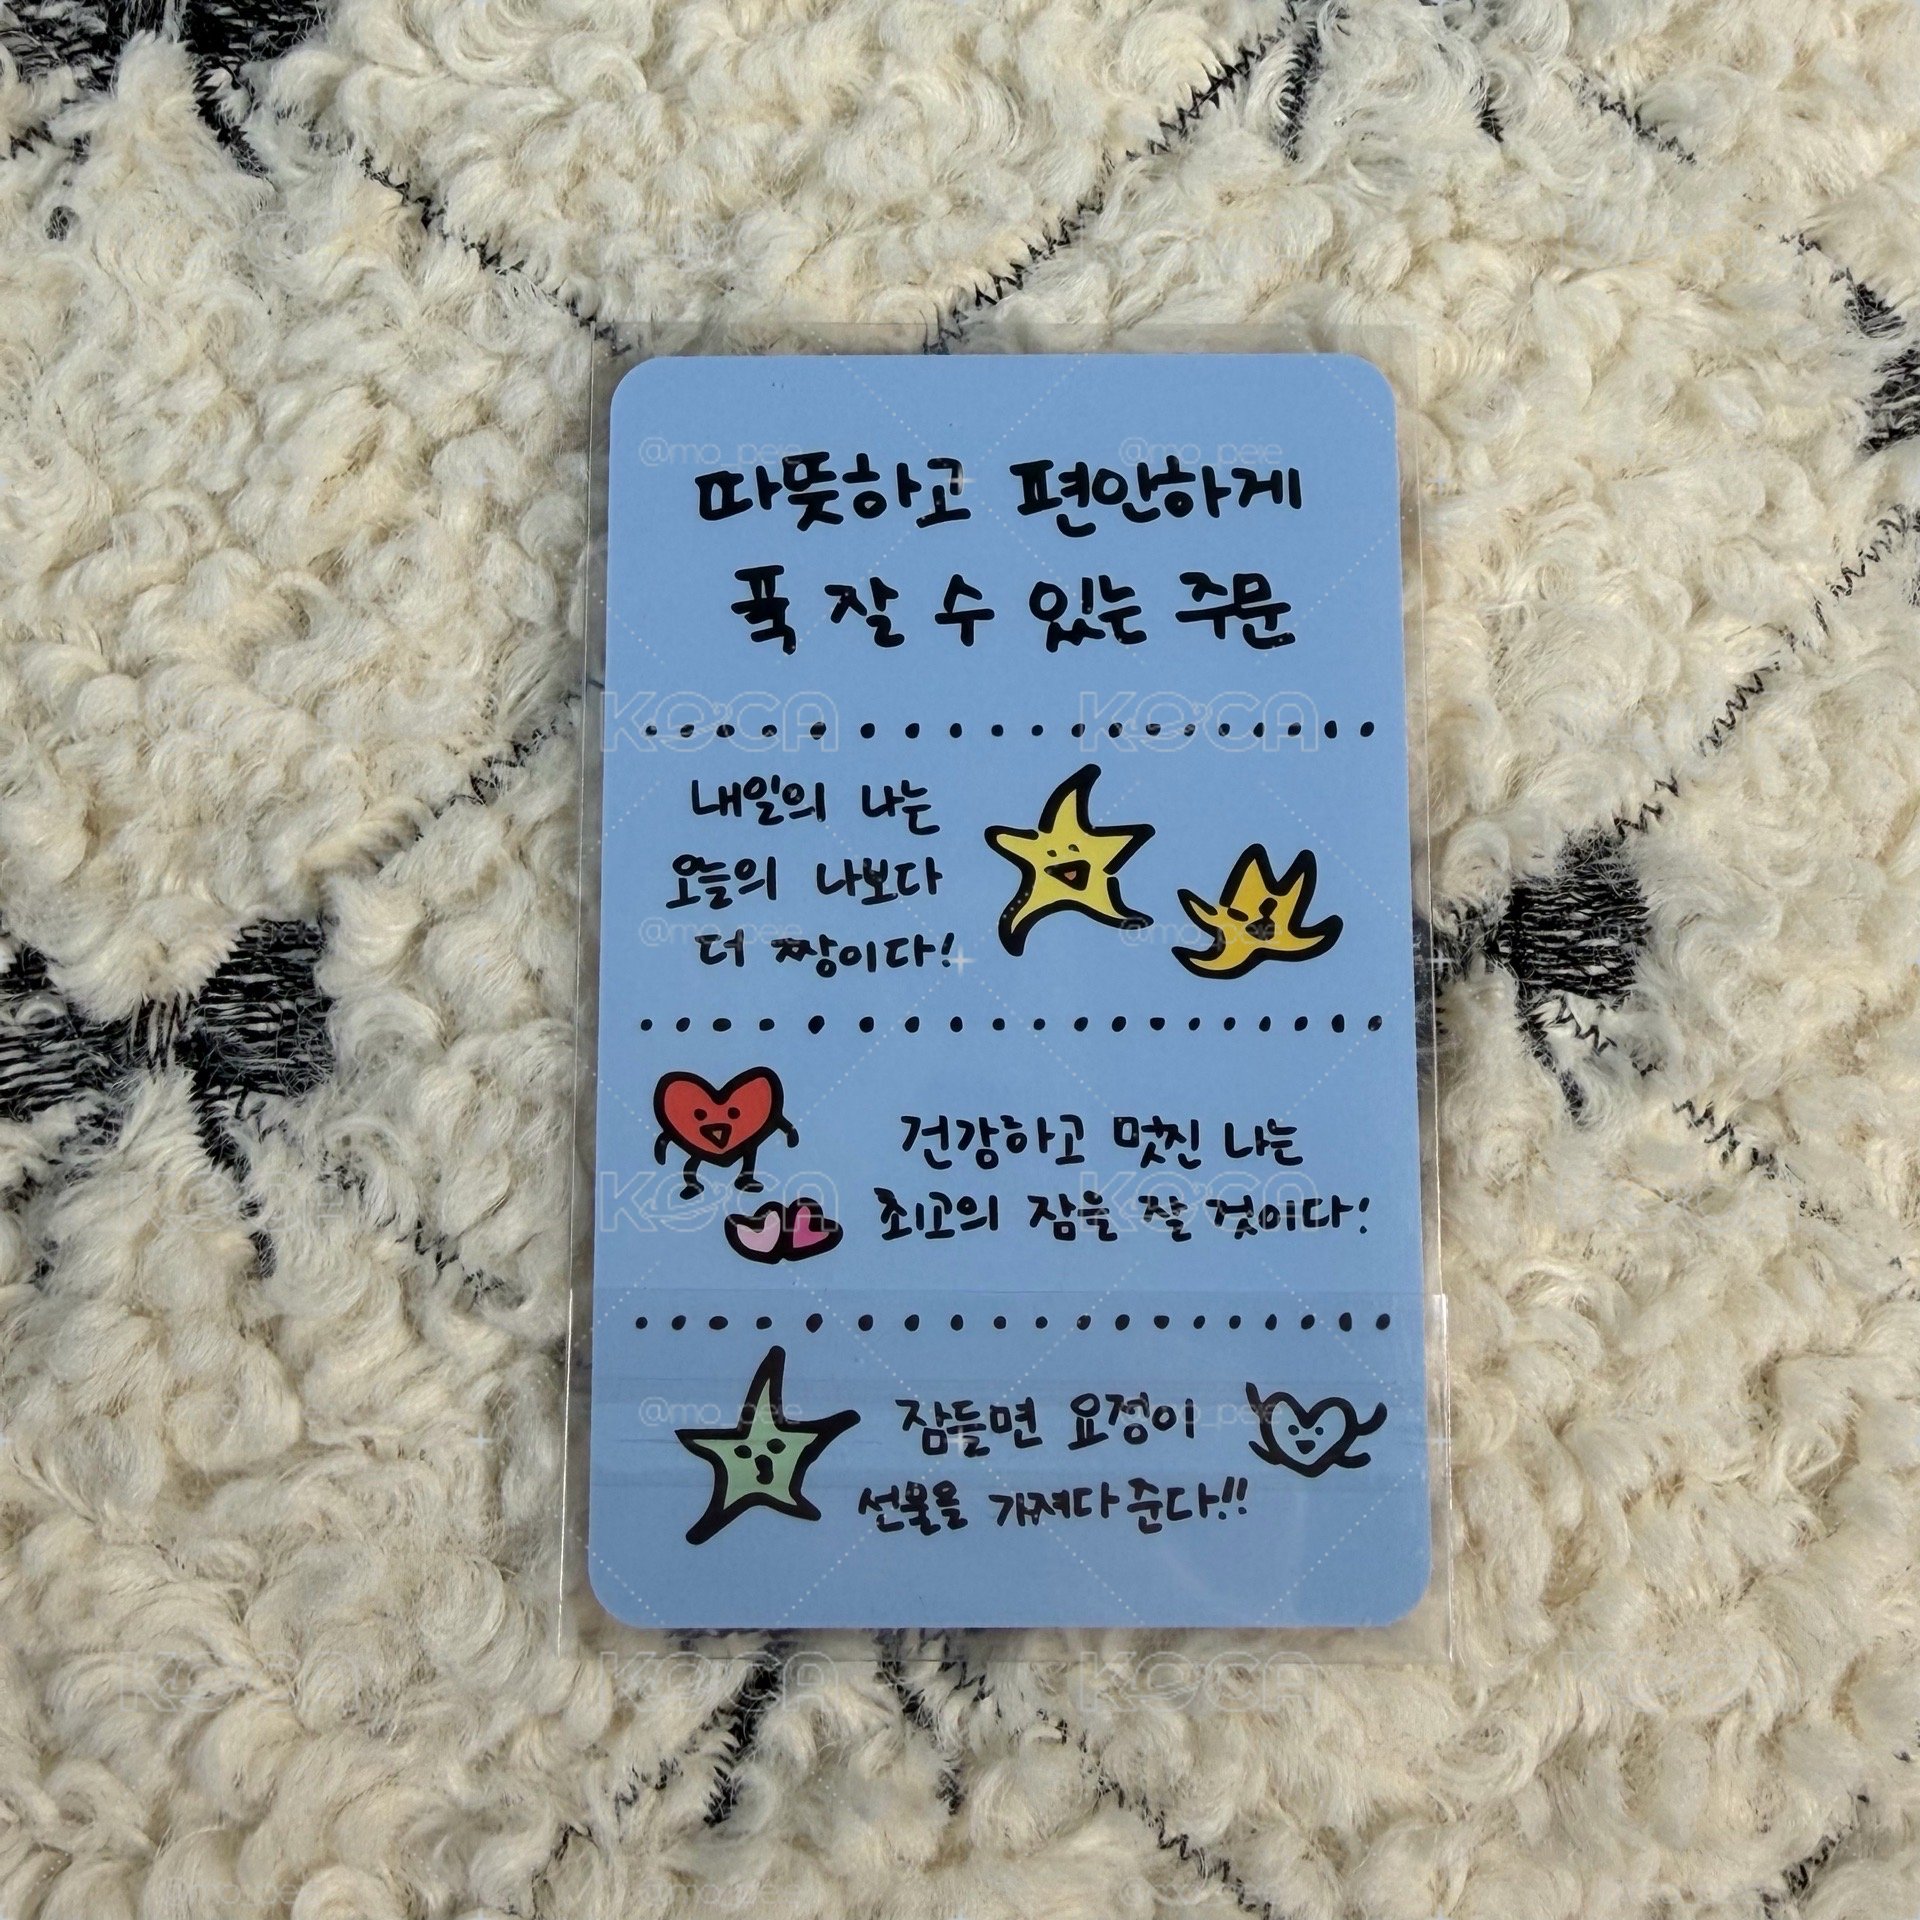 따뜻하고 편안하게
푹 잘 수 있는 주문
내일의 나는
오늘의 나보다
더 짱이다!
건강하고 멋진 나는
최고의 잠을 잘 것이다!
잠들면 요정이
선물을 가져다 준다!!
@mo_pee
KOCA